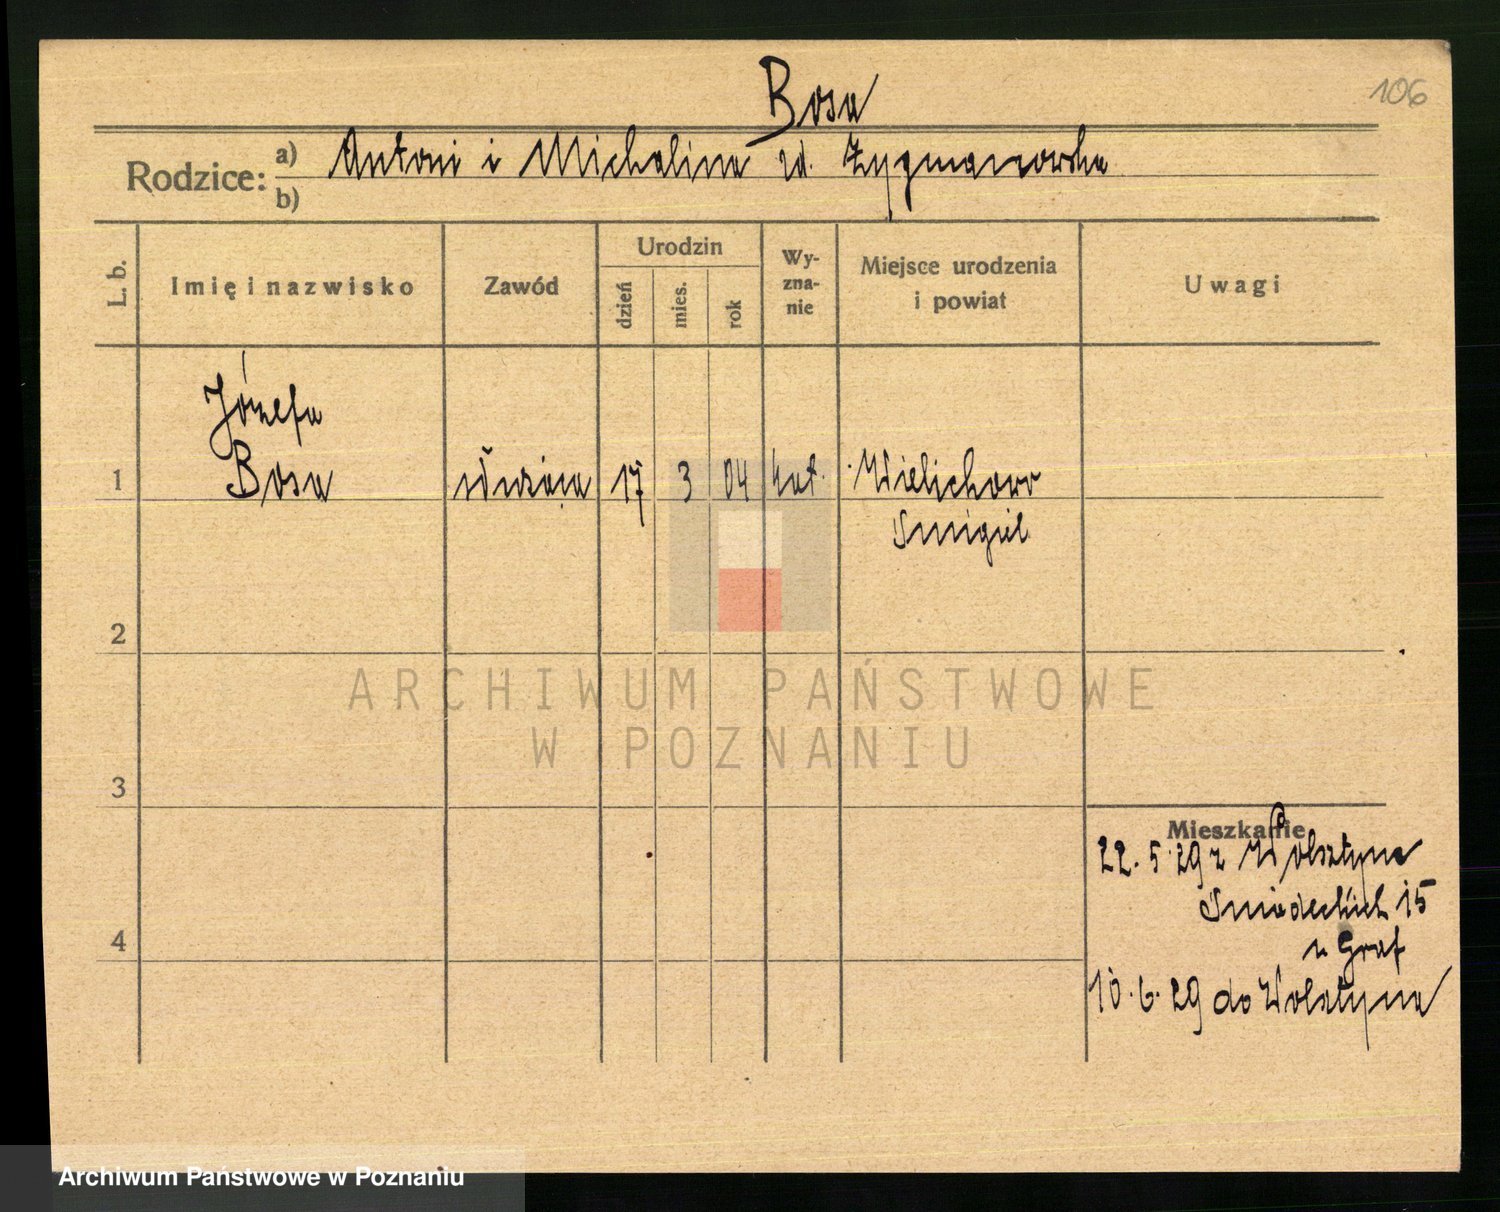 106
Bosa
Rodzice: a) Antoni i Michalina zd. Zygmanowska
b)
L. b.
Imię i nazwisko
Zawód
Urodzin
dzień
mies.
rok
Wy-
zna-
nie
Miejsce urodzenia
i powiat
Uwagi
Józefa
1 Bosa służąca 17 3 04 kat. Wielichowo
Śmigiel
2
3
4
Mieszkanie
22.5.29 z Wolsztyna
Śniadeckich 15
u Graf
10.6.29 do Wolsztyna
ARCHIWUM PAŃSTWOWE
W POZNANIU
Archiwum Państwowe w Poznaniu